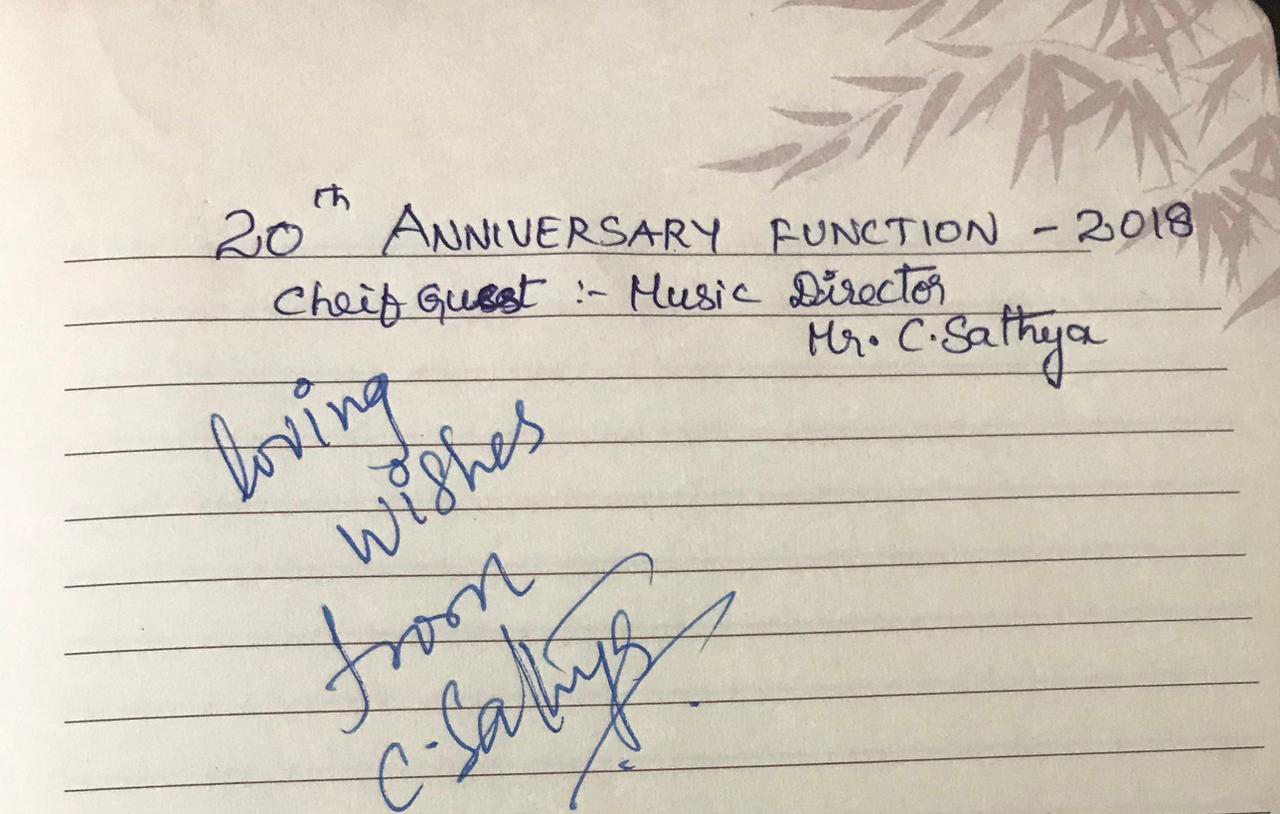 20th ANNIVERSARY FUNCTION - 2018
Cheif Guest :- Music Director
Mr. C. Sathya
loving
wishes
from
C. Sathya